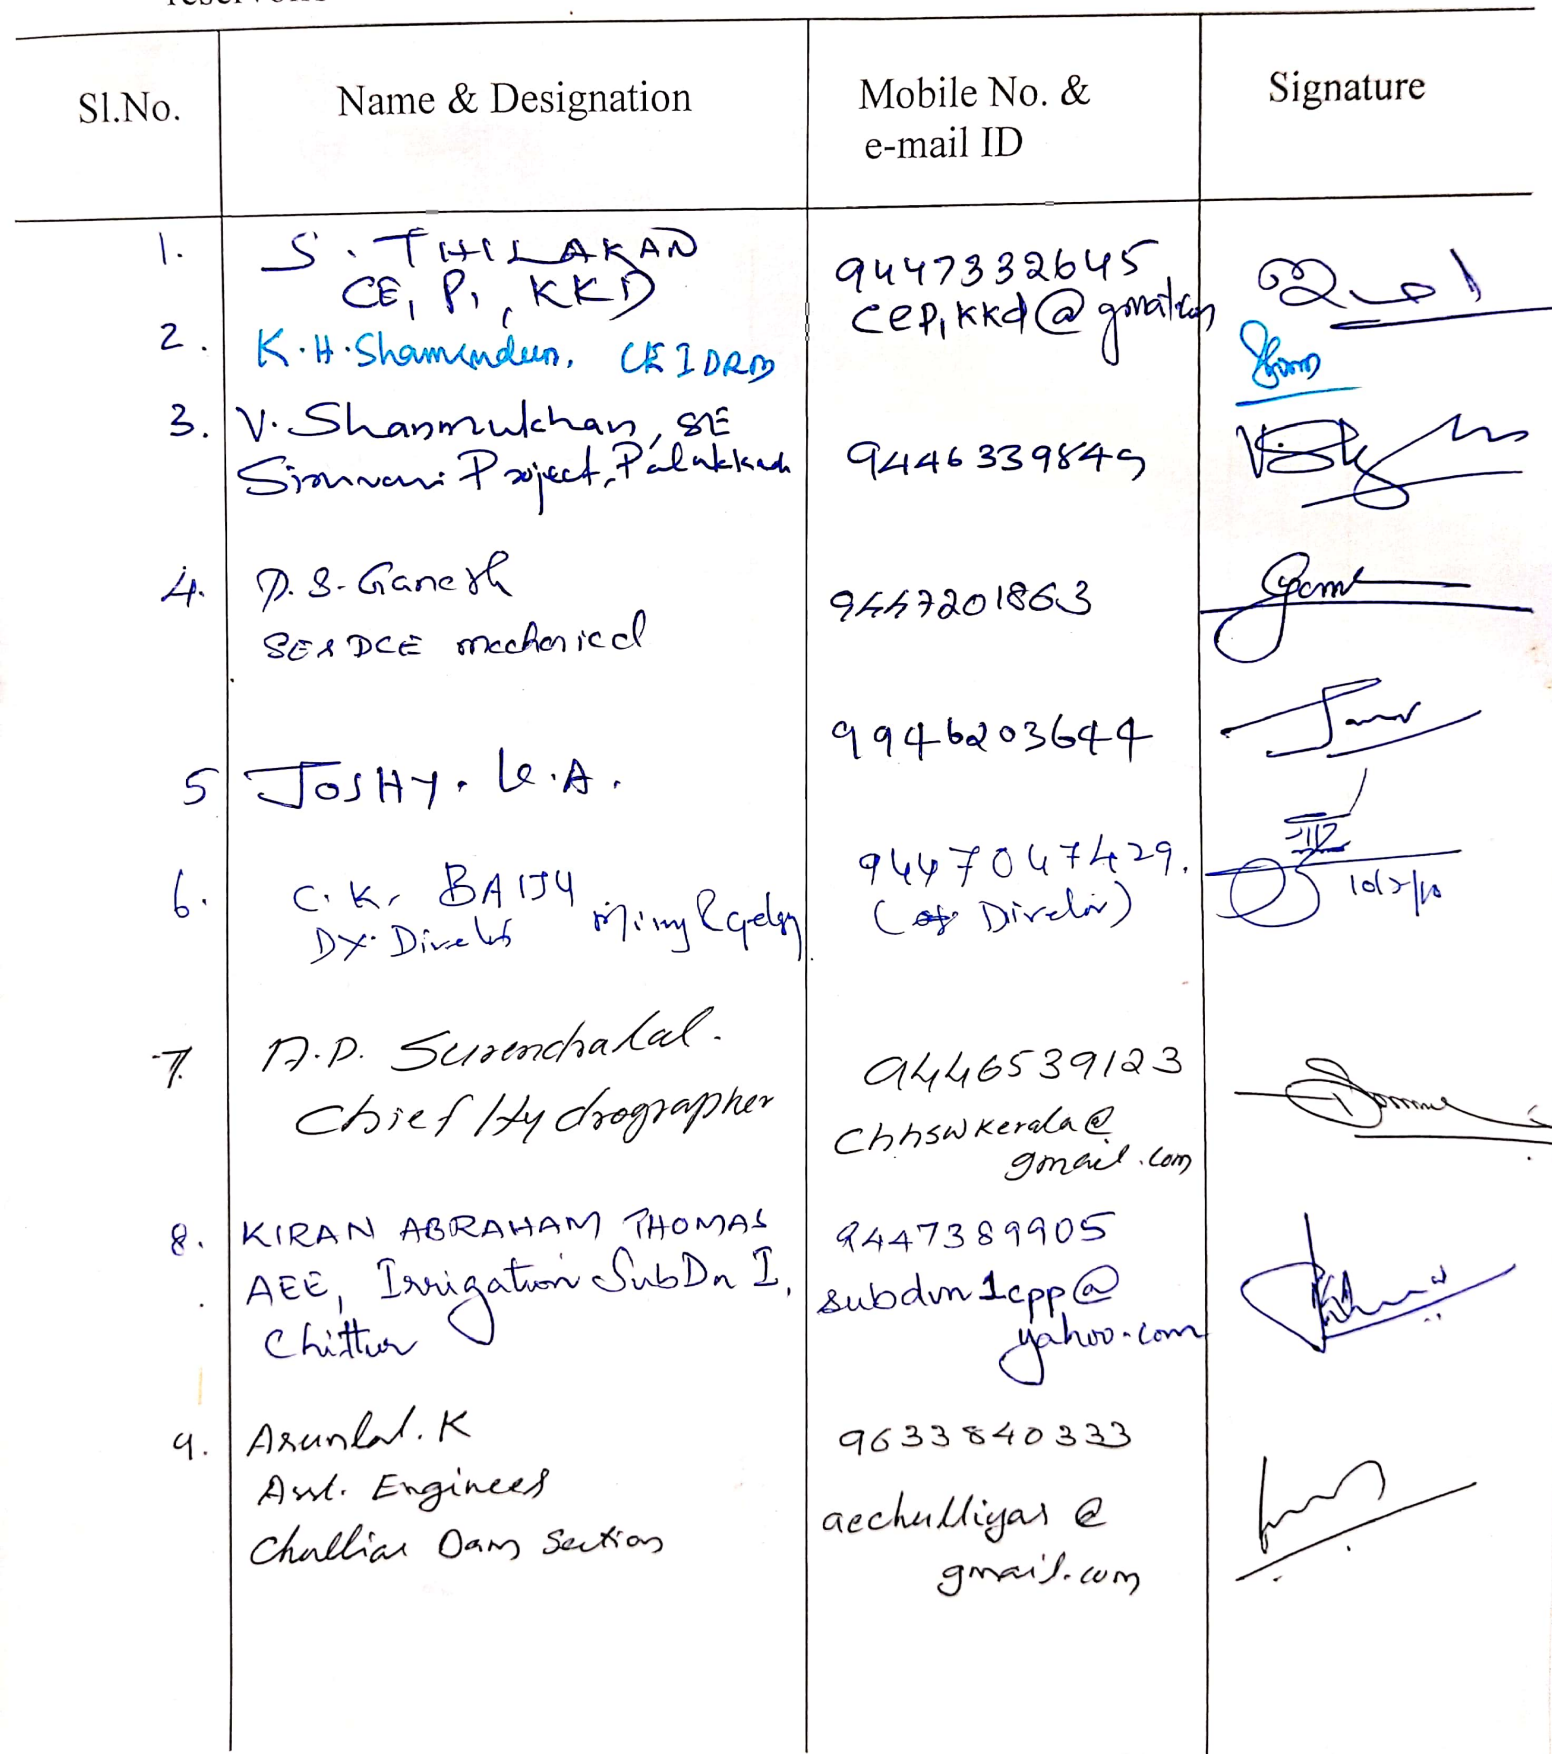 Sl.No.
Name & Designation
Mobile No. &
e-mail ID
Signature
1.
S. THILAKAN
CE, P1, KKD
94473332645
cep1kkd@gmail.com
2.
K.H. Shamsudeen, CE IDRB
3.
V. Shanmukhan, SE
Siruvani Project, Palakkad
9446339849
4.
P.S. Ganesh
SE & DCE mechanical
9447201863
5
JOSHY. K.A.
9946203644
6.
C.K. BAIJU
Dy. Director Mining & Geology
9447047429.
(Director)
7.
A.P. Surendralal.
Chief Hydrographer
9446539123
chhswkerala@
gmail.com
8.
KIRAN ABRAHAM THOMAS
AEE, Irrigation SubDn I,
Chittur
9447389905
subdvn1cpp@
yahoo.com
9.
Arunlal. K
Asst. Engineer
Chulliar Dam Section
9633840333
aechulliyar@
gmail.com